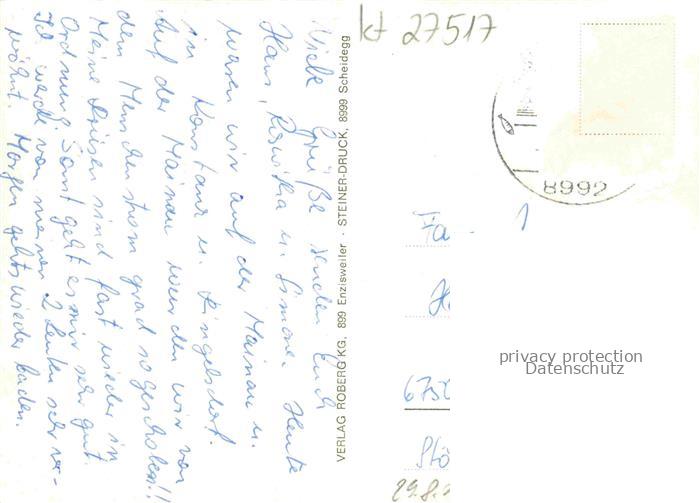 Viele Grüße senden Euch
Hans, Roswitha u. Simone. Heute
waren wir auf der Mainau u.
in Konstanz u. Dingelsdorf.
Auf der Mainau wurden wir von
dem Menschenstrom grad so geschoben!!
Meine Drüsen sind fast wieder in
Ordnung. Sonst geht es mir sehr gut.
Ich werde von meinen 2 Leuten sehr ver-
wöhnt. Morgen gehts wieder baden.
VERLAG ROBERG KG. 899 Enzisweiler · STEINER-DRUCK, 8999 Scheidegg
kt 27517
8992
Fa
1
675
Stö
29.8.
privacy protection
Datenschutz